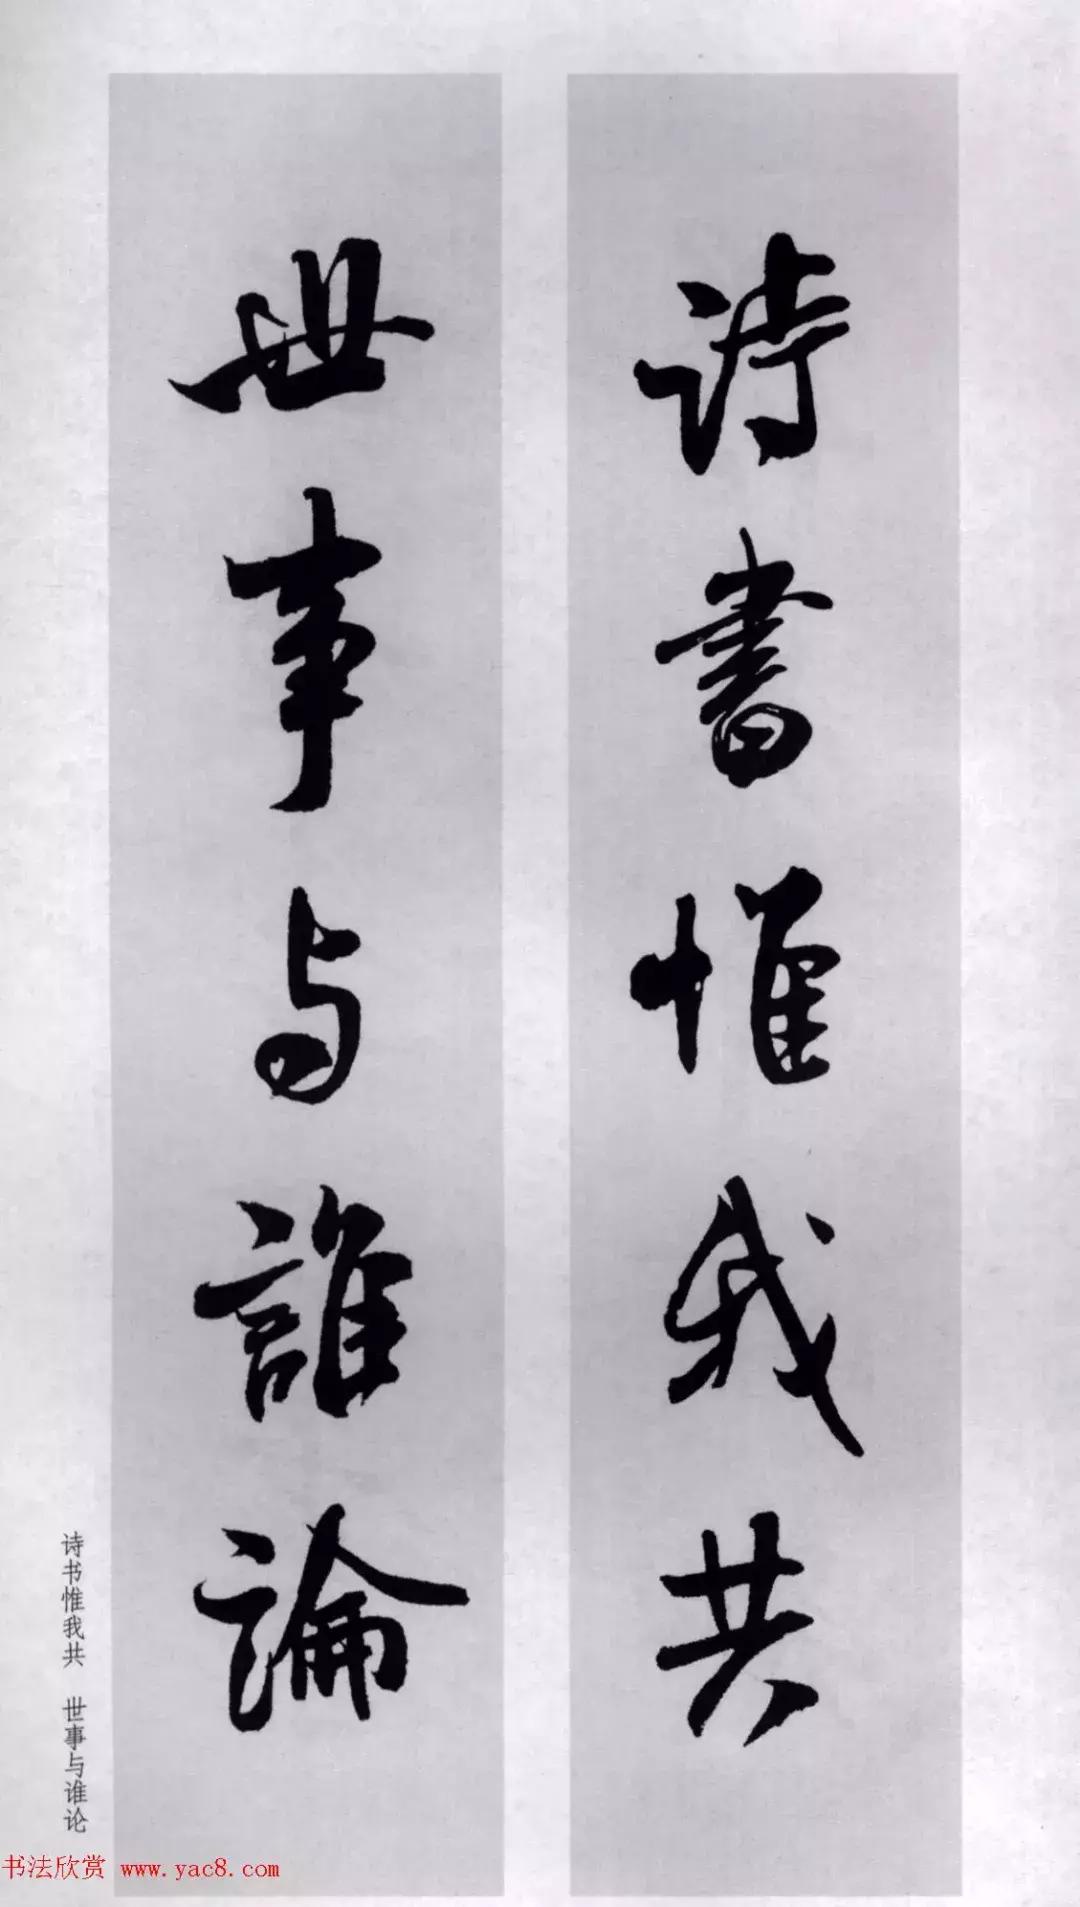 诗書惟我共
世事与誰論
诗书惟我共 世事与谁论
书法欣赏 www.yac8.com